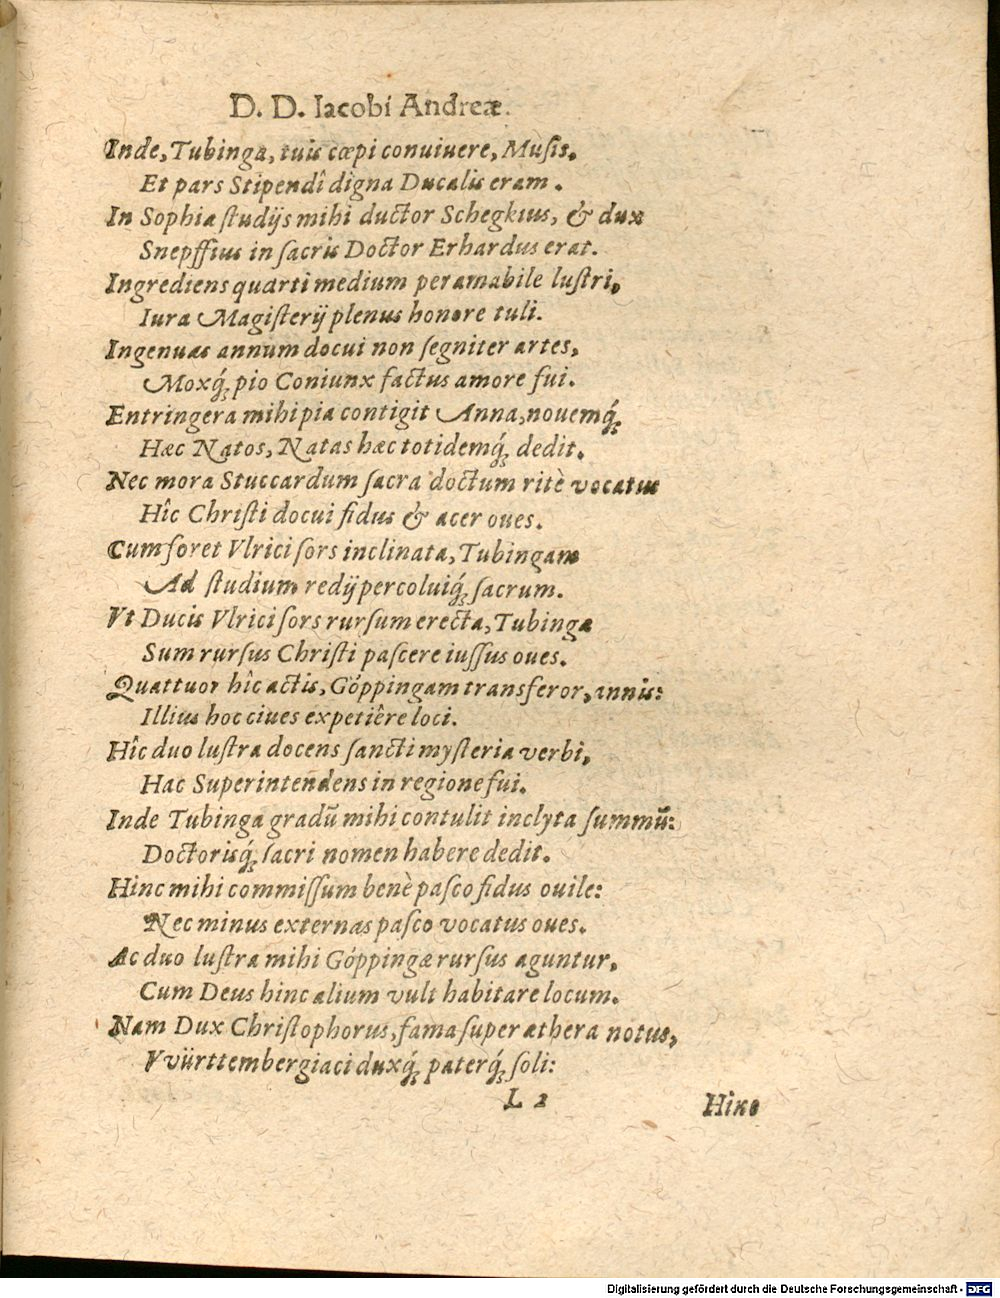 D. D. Iacobi Andreæ.
Inde, Tubinga, tuis cœpi conuiuere, Musis,
Et pars Stipendî digna Ducalis eram.
In Sophia ſtudijs mihi ductor Schegkius, & dux
Snepffius in ſacris Doctor Erhardus erat.
Ingrediens quarti medium per amabile luſtri,
Iura Magiſterij plenus honore tuli.
Ingenuas annum docui non ſegniter artes,
Moxq́; pio Coniunx factus amore fui.
Entringera mihi pia contigit Anna, nouemq́;
Hæc Natos, Natas hæc totidemq́; dedit.
Nec mora Stuccardum ſacra doctum ritè vocatus
Hîc Chriſti docui fidus & acer oues.
Cum foret Vlrici ſors inclinata, Tubingam
Ad ſtudium redij percoluiq́; ſacrum.
Vt Ducis Vlrici ſors rurſum erecta, Tubingæ
Sum rurſus Chriſti paſcere iuſſus oues.
Quattuor hîc actis, Göppingam transferor, annis:
Illius hoc ciues expetiêre loci.
Hîc duo luſtra docens ſancti myſteria verbi,
Hac Superintendens in regione fui.
Inde Tubinga gradū mihi contulit inclyta ſummū:
Doctorisq́; ſacri nomen habere dedit.
Hinc mihi commiſſum benè paſco fidus ouile:
Nec minus externas paſco vocatus oues.
Ac duo luſtra mihi Göppingæ rurſus aguntur,
Cum Deus hinc alium vult habitare locum.
Nam Dux Chriſtophorus, fama ſuper æthera notus,
Vvürttembergiaci duxq́; paterq́; ſoli:
L 2
Hinc
Digitalisierung gefördert durch die Deutsche Forschungsgemeinschaft - DFG